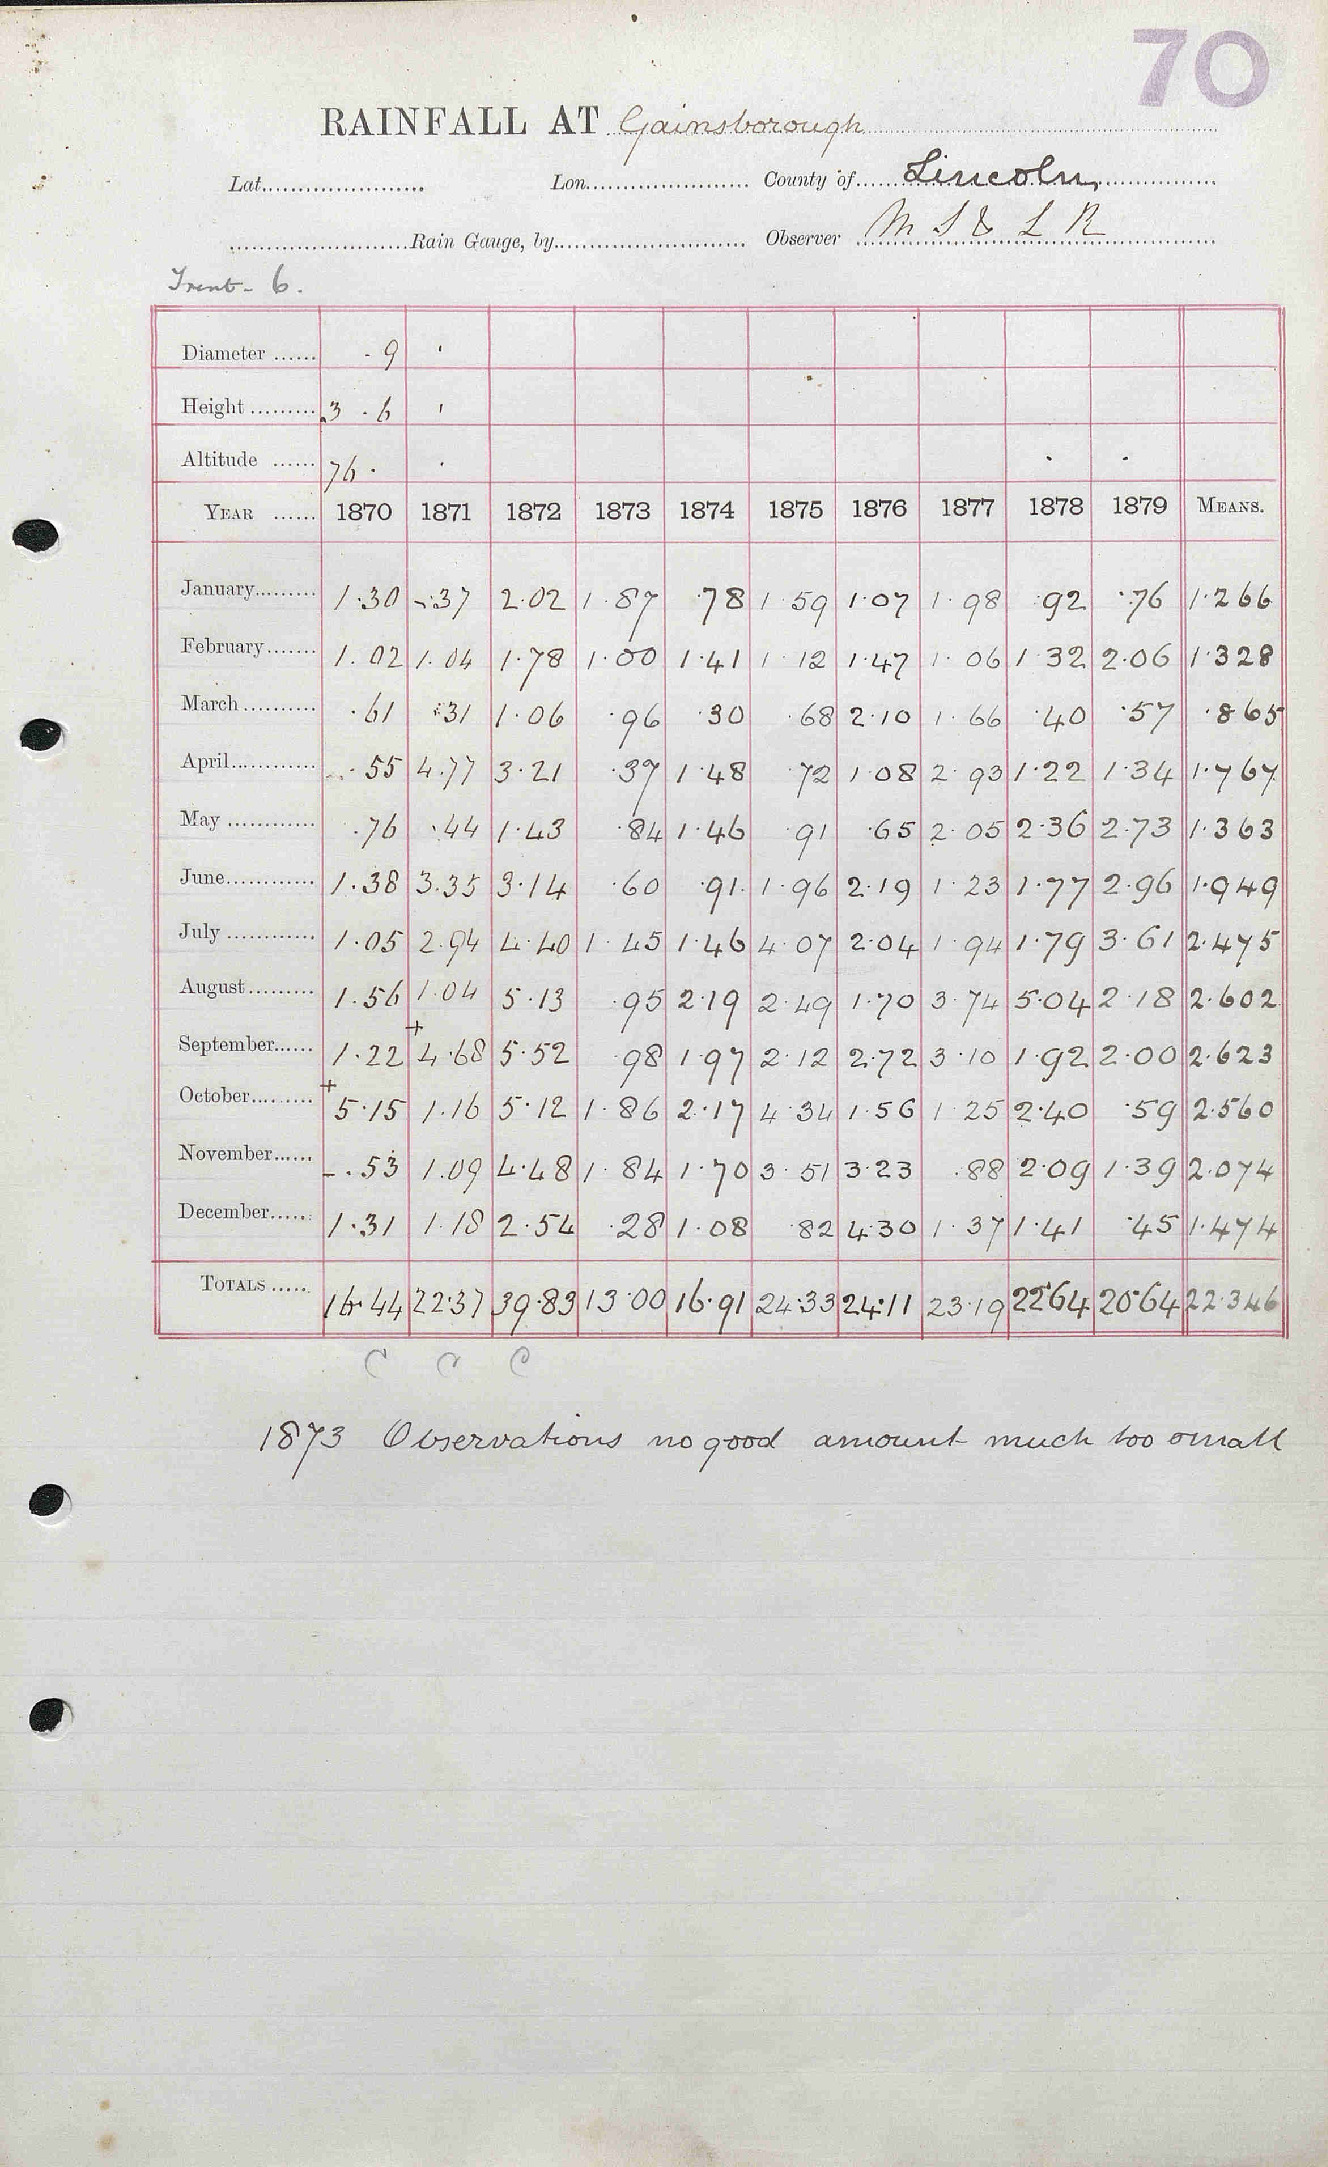 70
RAINFALL AT Gainsborough
Lat. Lon. County of Lincoln
Rain Gauge, by Observer M S & L R
Trent - 6.
Diameter ...... - 9
Height ......... 3 . 6
Altitude ...... 76.
YEAR ...... 1870 1871 1872 1873 1874 1875 1876 1877 1878 1879 MEANS.
January......... 1.30 .37 2.02 1.87 .78 1.59 1.07 1.98 .92 .76 1.266
February....... 1.02 1.04 1.78 1.00 1.41 1.12 1.47 1.06 1.32 2.06 1.328
March .......... .61 .31 1.06 .96 .30 .68 2.10 1.66 .40 .57 .865
April............ .55 4.77 3.21 .37 1.48 .72 1.08 2.93 1.22 1.34 1.767
May ............ .76 .44 1.43 .84 1.46 .91 .65 2.05 2.36 2.73 1.363
June............ 1.38 3.35 3.14 .60 .91 1.96 2.19 1.23 1.77 2.96 1.949
July ............ 1.05 2.94 4.40 1.45 1.46 4.07 2.04 1.94 1.79 3.61 2.475
August......... 1.56 1.04 5.13 .95 2.19 2.49 1.70 3.74 5.04 2.18 2.602
September...... 1.22 + 4.68 5.52 .98 1.97 2.12 2.72 3.10 1.92 2.00 2.623
October......... + 5.15 1.16 5.12 1.86 2.17 4.34 1.56 1.25 2.40 .59 2.560
November...... - .53 1.09 4.48 1.84 1.70 3.51 3.23 .88 2.09 1.39 2.074
December...... 1.31 1.18 2.54 .28 1.08 .82 4.30 1.37 1.41 .45 1.474
TOTALS ..... 16.44 22.37 39.83 13.00 16.91 24.33 24.11 23.19 22.64 20.64 22.346
C C C
1873 Observations no good amount much too small